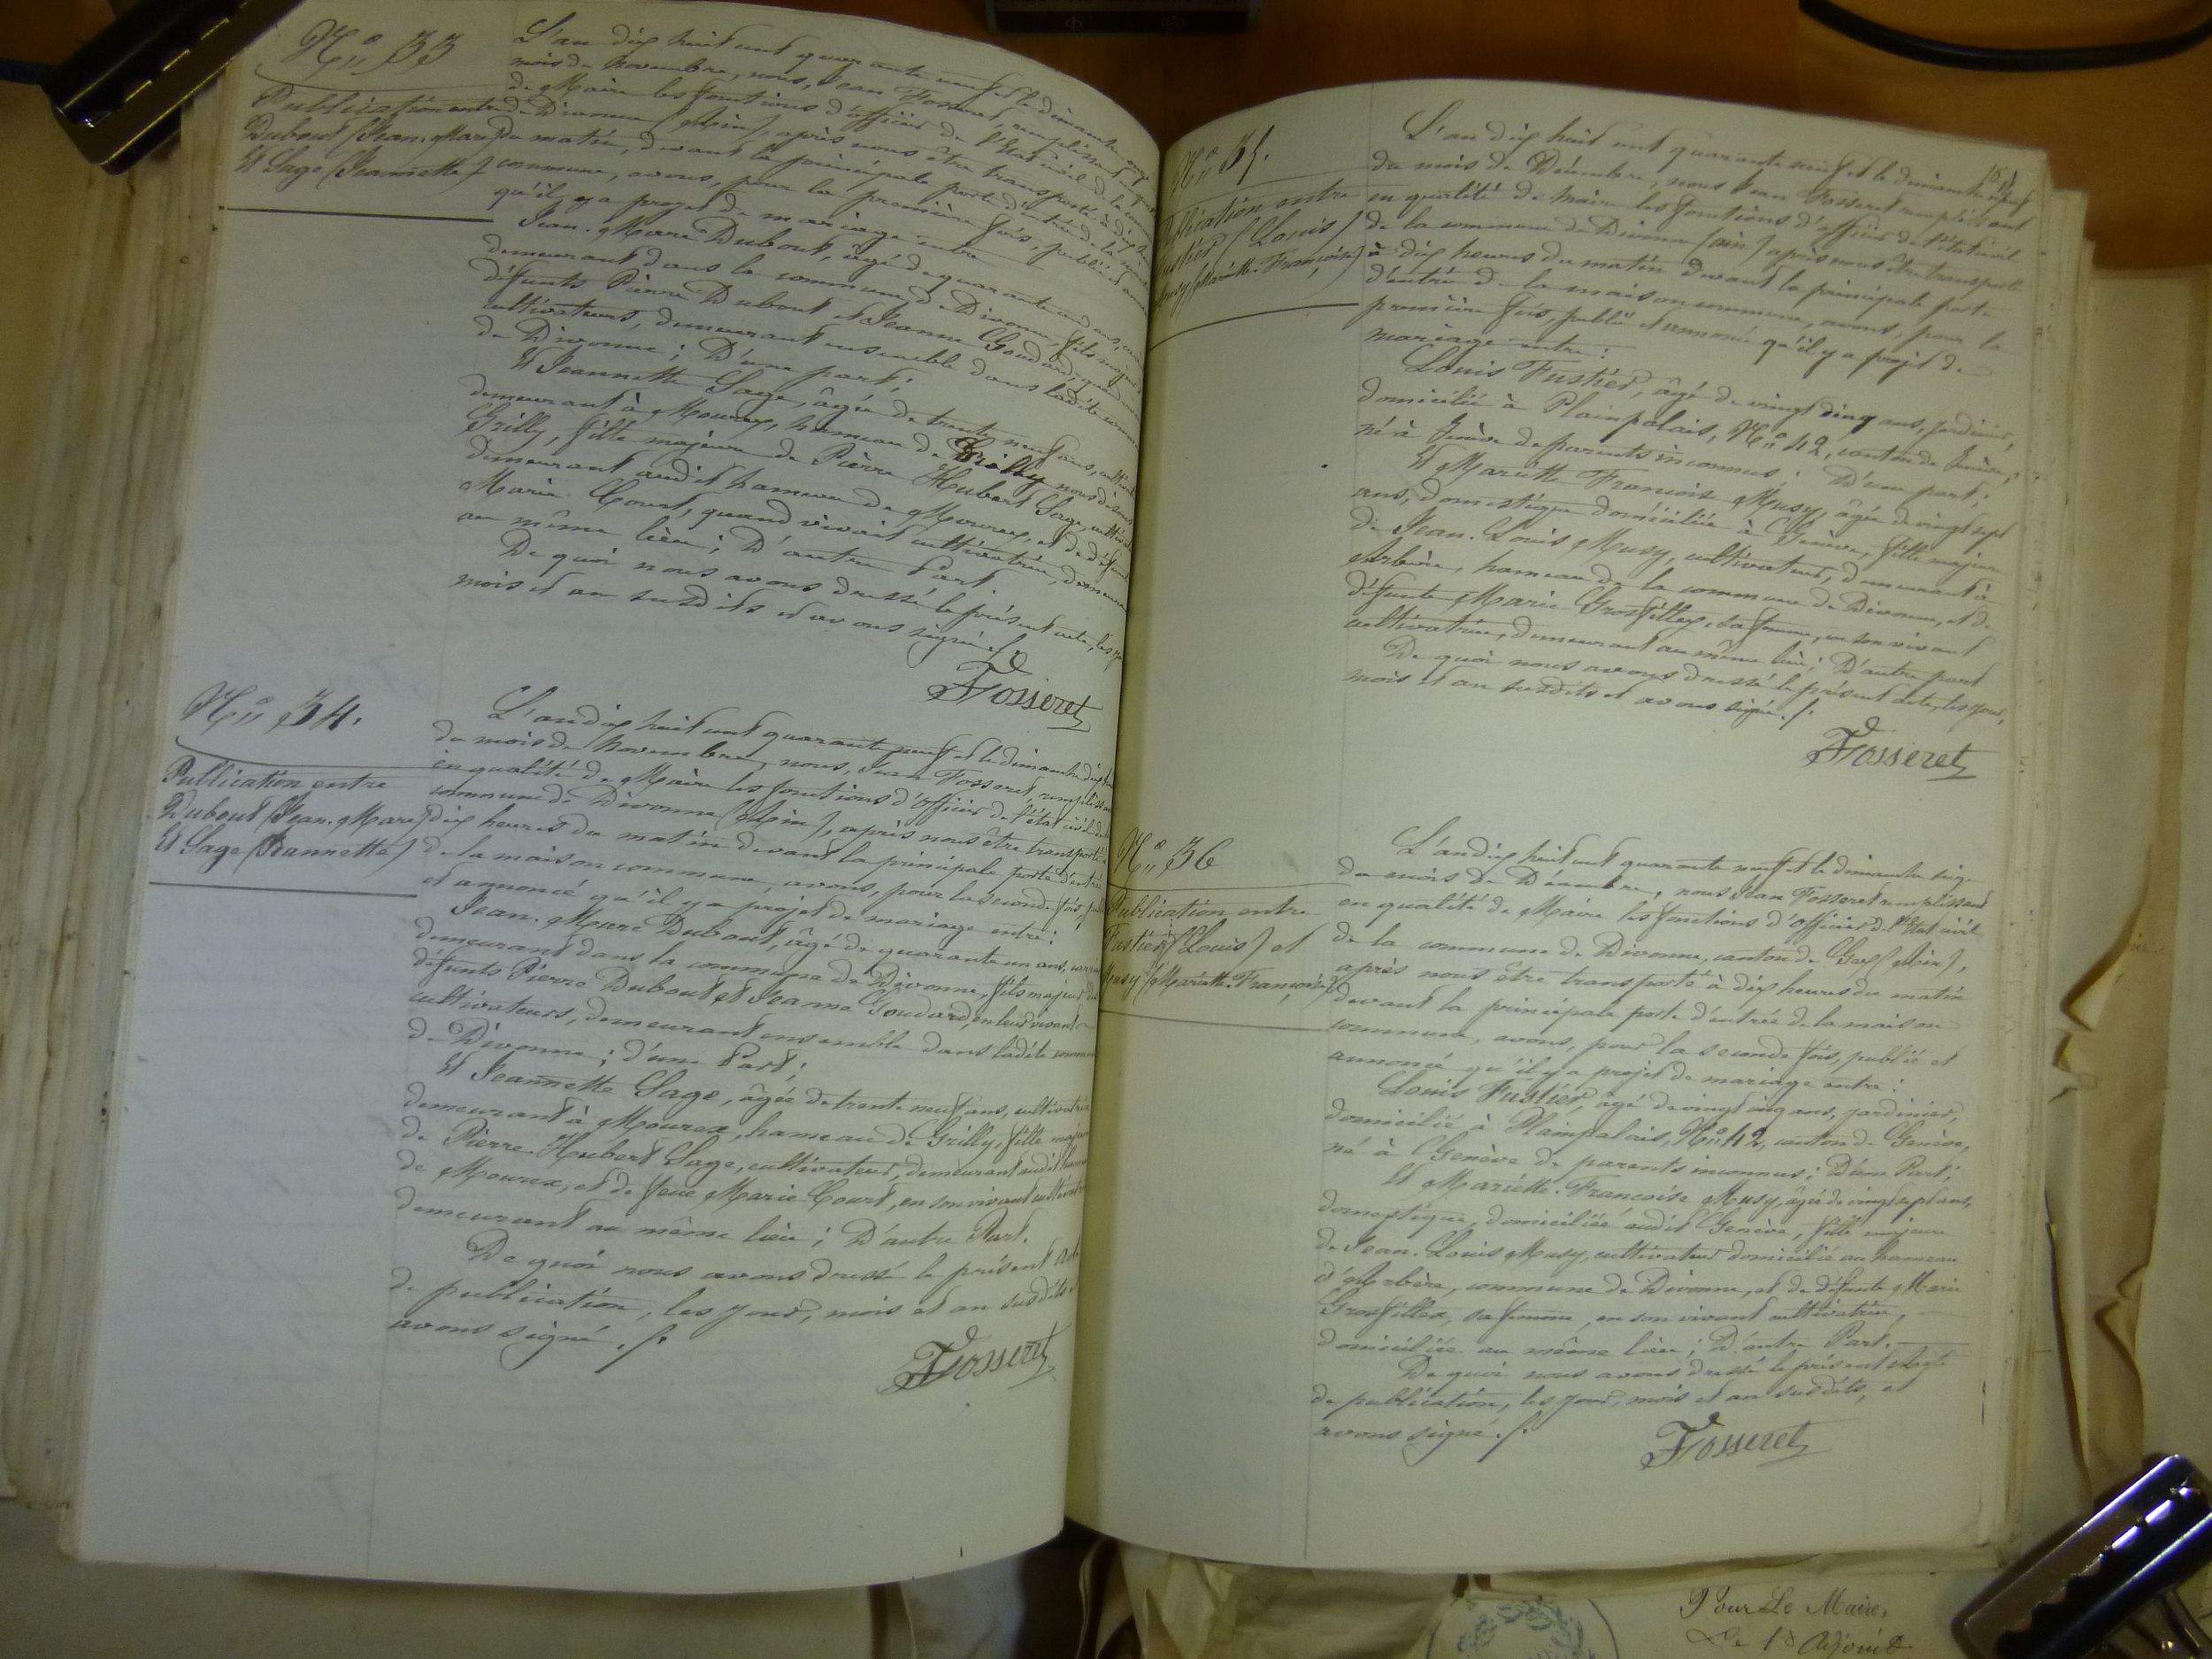 N° 33
Publication entre
Dubout (Jean-Marc)
Et Sage (Jeannette)
L'an dix huit cent quarante neuf et le dimanche onze
mois de Novembre, nous, Jean Fosseret, remplissant en
de Maire les fonctions d'officier de l'Etat civil de la
de Divonne (Ain), après nous être transporté à dix
du matin, devant la principale porte d'entrée de la maison
commune, avons, pour la première fois, publié et
qu'il y a projet de mariage entre
Jean-Marc Dubout, âgé de quarante un ans,
demeurant dans la commune de Divonne, fils majeur
défunts Pierre Dubout et Jeanne Goudard, quand
cultivateurs, demeurant ensemble dans ladite commune
de Divonne ; D'une part ;
Et Jeannette Sage, âgée de trente neuf ans, cultivatrice
demeurant à Mourex, hameau de Grilly nous disons
Grilly, fille majeure de Pierre Hubert Sage, cultivateur
demeurant audit hameau de Mourex, et de défunte
Marie Court, quand vivait cultivatrice, demeurant
au même lieu ; D'autre Part
De quoi nous avons dressé le présent acte, les jour
mois et an susdits et avons signé ./.
Fosseret
N° 34.
Publication entre
Dubout (Jean-Marc)
Et Sage (Jeannette)
L'an dix huit cent quarante neuf et le dimanche dix
du mois de Novembre, nous, Jean Fosseret, remplissant
en qualité de Maire les fonctions d'officier de l'état civil de la
commune de Divonne (Ain), après nous être transporté à
dix heures du matin devant la principale porte d'entrée
de la maison commune, avons, pour la seconde fois, publié
et annoncé qu'il y a projet de mariage entre :
Jean-Marc Dubout, âgé de quarante un ans,
demeurant dans la commune de Divonne, fils majeur de
défunts Pierre Dubout et Jeanne Goudard, en leur vivant
cultivateurs, demeurant ensemble dans ladite commune
de Divonne ; d'une Part ;
Et Jeannette Sage, âgée de trente neuf ans, cultivatrice
demeurant à Mourex, hameau de Grilly, fille majeure
de Pierre-Hubert Sage, cultivateur, demeurant audit hameau
de Mourex, et de feue Marie Court, en son vivant cultivatrice
demeurant au même lieu ; D'autre Part.
De quoi nous avons dressé le présent acte
de publication, les jour, mois et an susdits et
avons signé ./.
Fosseret
N° 35.
Publication entre
Fustier (Louis)
Musy (Mariette-Françoise)
L'an dix huit cent quarante neuf et le dimanche neuf
du mois de Décembre, nous Jean Fosseret remplissant
en qualité de Maire les fonctions d'officier de l'état civil
de la commune de Divonne (Ain) après nous être transporté
à dix heures du matin devant la principale porte
d'entrée de la maison commune, avons, pour la
première fois, publié et annoncé qu'il y a projet de
mariage entre :
Louis Fustier, âgé de vingt cinq ans, jardinier,
domicilié à Plainpalais, N° 42, canton de Genève,
né à Genève de parents inconnus ; D'une part ;
Et Mariette Françoise Musy, âgée de vingt sept
ans, domestique domiciliée à Genève, fille majeure
de Jean-Louis Musy, cultivateur, demeurant à
Arbère, hameau de la commune de Divonne, et de
défunte Marie Grosfilley, sa femme, en son vivant
cultivatrice, demeurant au même lieu ; D'autre part
De quoi nous avons dressé le présent acte, les jour,
mois et an susdits et avons signé ./.
Fosseret
N° 36
Publication entre
Fustier (Louis) et
Musy (Mariette-Françoise)
L'an dix huit cent quarante neuf et le dimanche seize
du mois de Décembre, nous Jean Fosseret remplissant
en qualité de Maire les fonctions d'officier de l'Etat civil
de la commune de Divonne, canton de Gex (Ain),
après nous être transporté à dix heures du matin
devant la principale porte d'entrée de la maison
commune, avons, pour la seconde fois, publié et
annoncé qu'il y a projet de mariage entre :
Louis Fustier, âgé de vingt cinq ans, jardinier,
domicilié à Plainpalais, N° 42, canton de Genève,
né à Genève de parents inconnus ; D'une Part ;
Et Mariette-Françoise Musy, âgée de vingt sept ans,
domestique, domiciliée audit Genève, fille majeure
de Jean-Louis Musy, cultivateur domicilié au hameau
d'Arbère, commune de Divonne, et de défunte Marie
Grosfillex, sa femme, en son vivant cultivatrice,
domiciliée au même lieu ; D'autre Part.
De quoi nous avons dressé le présent acte
de publication, les jour, mois et an susdits, et
avons signé ./.
Fosseret
Pour Le Maire,
Le 1er Adjoint